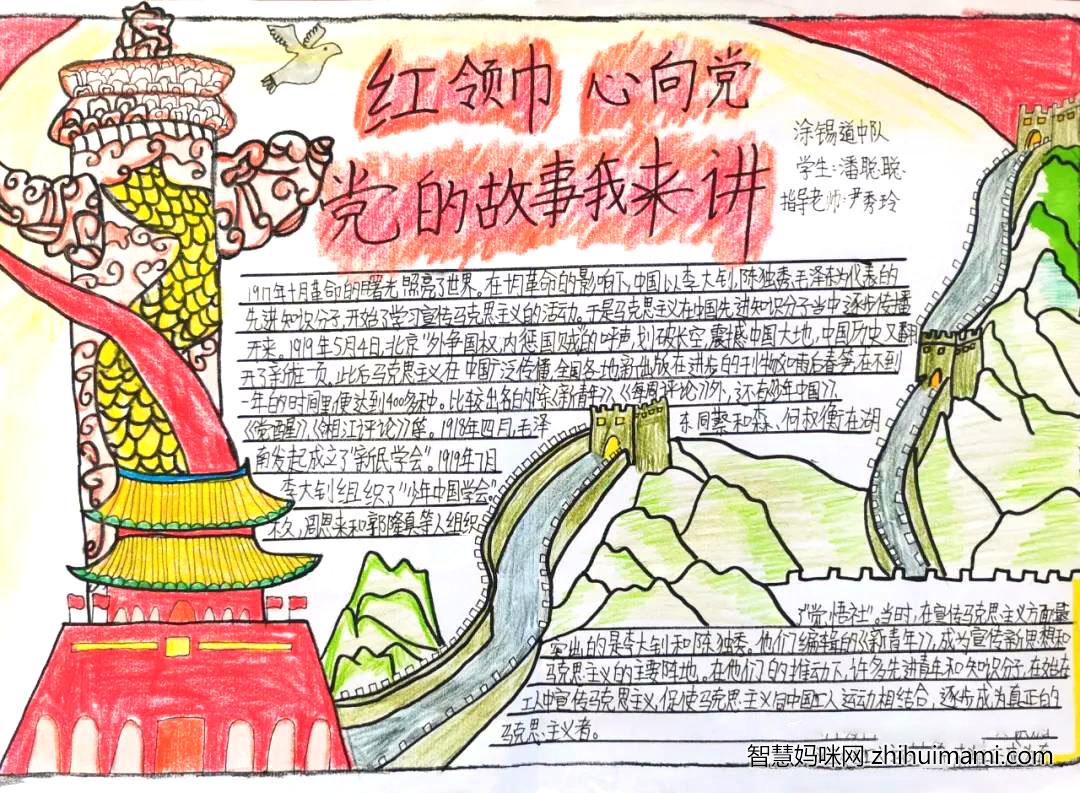 红领巾 心向党
党的故事我来讲
涂锡道中队
学生:潘聪聪.
指导老师:尹秀玲
1917年十月革命的曙光照亮了世界。在十月革命的影响下,中国以李大钊,陈独秀,毛泽东为代表的
先进知识分子,开始了学习宣传马克思主义的活动。于是马克思主义在中国先进知识分子当中逐步传播
开来。1919年5月4日,北京"外争国权,内惩国贼"的呼声,划破长空,震撼中国大地,中国历史又翻
开了新的一页。此后马克思主义在中国广泛传播,全国各地新出版在进步的刊物如雨后春笋,在不到
一年的时间里便达到400多种。比较出名的除《新青年》、《每周评论》外,还有《少年中国》、
《觉醒》、《湘江评论》等。1918年四月,毛泽
东同蔡和森、何叔衡在湖
南发起成立了"新民学会"。1919年7月
李大钊组织了"少年中国学会"。
不久,周恩来和郭隆真等人组织
了"觉悟社"。当时,在宣传马克思主义方面最
突出的是李大钊和陈独秀。他们编辑的《新青年》,成为宣传新思想和
马克思主义的主要阵地。在他们的推动下,许多先进青年和知识分子,在
工人中宣传马克思主义,促使马克思主义同中国工人运动相结合,逐步成为真正的
马克思主义者。
智慧妈咪网 zhihuimami.com